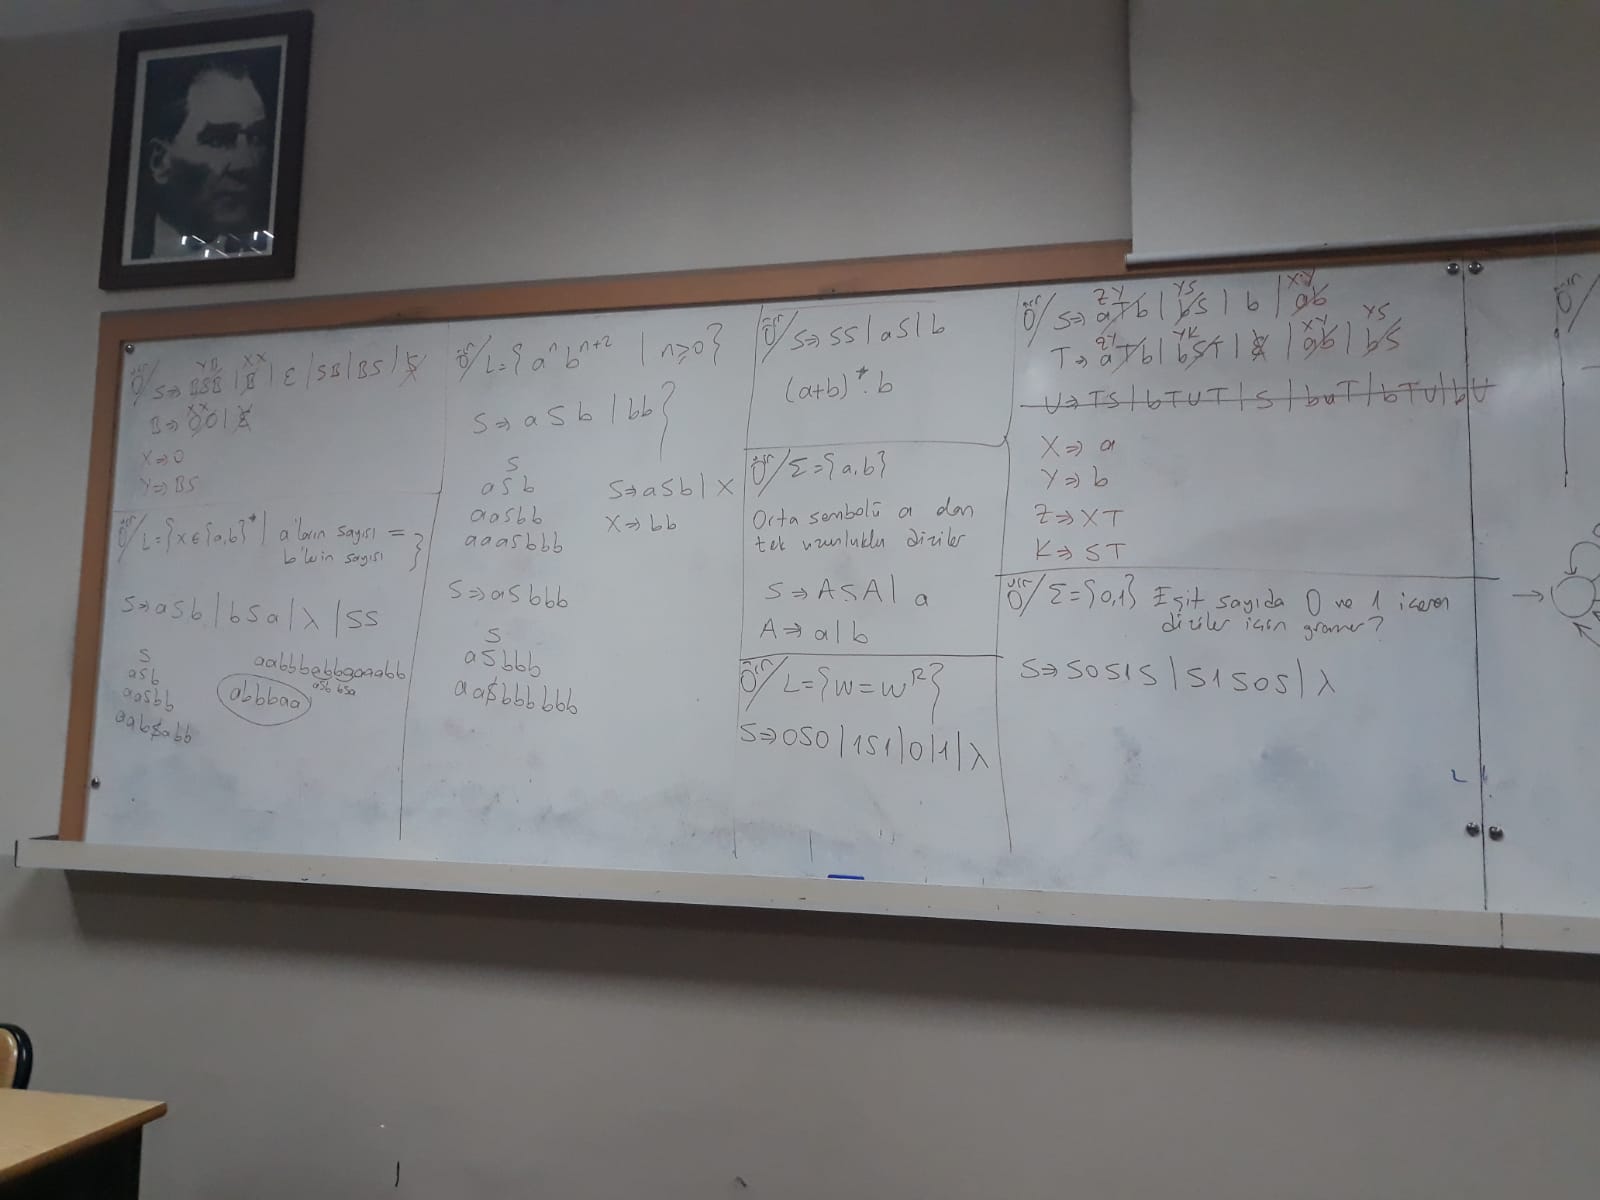 Ör/ S⇒ BSB | B | ε | SB | BS | S
YB XX
B⇒ 00 | ε
XX
X⇒0
Y⇒BS
Ör/ L={x∈{a,b}* | a'ların sayısı =
b'lerin sayısı }
S⇒aSb | bSa | λ | SS
S
aSb
aaSbb
aabSabb
abbbaa
aSb bSa
Ör/ L={aⁿbⁿ⁺² | n≥0}
S⇒ aSb | bb }
S
aSb
aaSbb
aaaSbbb
S⇒aSb | X
X⇒bb
S⇒aSbbb
S
aSbbb
aaSbbbbbb
Ör/ S⇒ SS | aS | b
(a+b)*.b
Ör/ Σ={a,b}
Orta sembolü a olan
tek uzunluklu diziler
S⇒ASA | a
A⇒a|b
Ör/ L={w=wᴿ}
S⇒0S0 | 1S1 | 0 | 1 | λ
Ör/ S⇒ aTb | bS | b | ab
ZY YS XY
T⇒ aTb | bST | ε | ab | bS
ZY YK XY YS
U⇒TS | bTUT | S | baT | bTU | bU
X⇒ a
Y⇒ b
Z⇒XT
K⇒ST
Ör/ Σ={0,1} Eşit sayıda 0 ve 1 içeren
diziler için gramer?
S⇒S0S1S | S1S0S | λ
Ör/